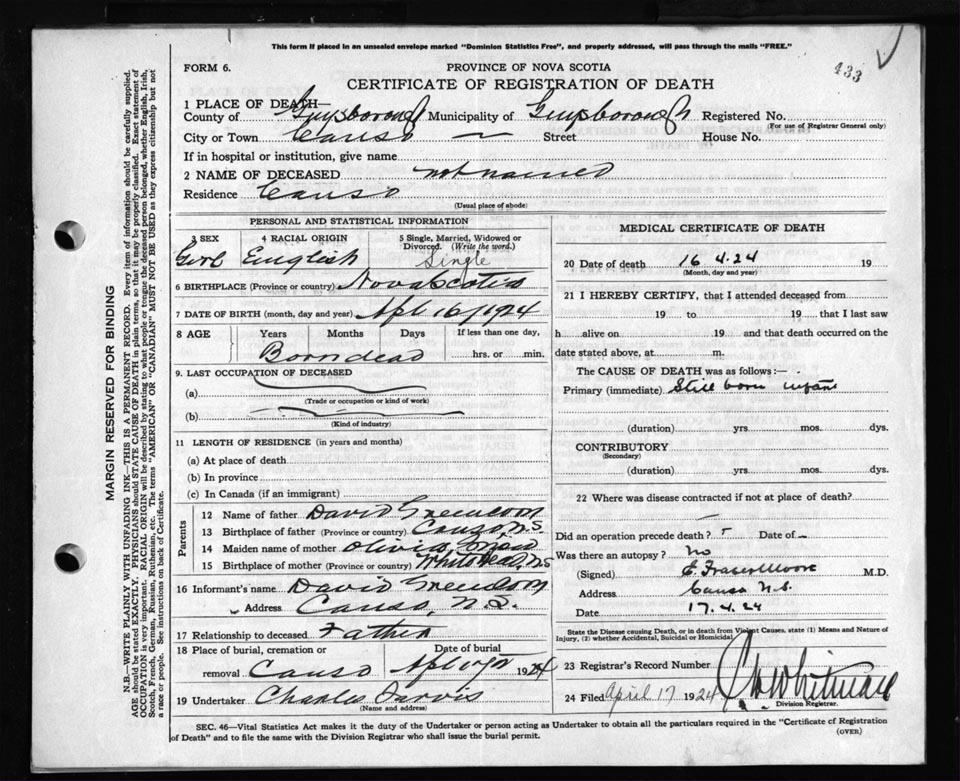 This form if placed in an unsealed envelope marked "Dominion Statistics Free", and properly addressed, will pass through the mails "FREE."
433
FORM 6.
PROVINCE OF NOVA SCOTIA
CERTIFICATE OF REGISTRATION OF DEATH
1 PLACE OF DEATH—
County of Guysborough Municipality of Guysborough Registered No.
(For use of Registrar General only)
City or Town Canso — Street House No.
If in hospital or institution, give name
2 NAME OF DECEASED not named
Residence Canso
(Usual place of abode)
PERSONAL AND STATISTICAL INFORMATION
3 SEX 4 RACIAL ORIGIN 5 Single, Married, Widowed or Divorced. (Write the word.)
Girl English Single
6 BIRTHPLACE (Province or country) Nova Scotia
7 DATE OF BIRTH (month, day and year) Apl 16/1924
8 AGE Years Months Days If less than one day,
Born dead hrs. or min.
9. LAST OCCUPATION OF DECEASED
(a)
(Trade or occupation or kind of work)
(b)
(Kind of industry)
11 LENGTH OF RESIDENCE (in years and months)
(a) At place of death
(b) In province
(c) In Canada (if an immigrant)
Parents
12 Name of father David
13 Birthplace of father (Province or country) Canso, N.S
14 Maiden name of mother
15 Birthplace of mother (Province or country) White Head, N.S
16 Informant's name David
Address Canso, N.S.
17 Relationship to deceased Father
18 Place of burial, cremation or Date of burial
removal Canso Apl 17th 1924
19 Undertaker Charles Jarvis
(Name and address)
MEDICAL CERTIFICATE OF DEATH
20 Date of death 16 4.24 19
(Month, day and year)
21 I HEREBY CERTIFY, that I attended deceased from
19 to 19 that I last saw
h alive on 19 and that death occurred on
date stated above, at m.
The CAUSE OF DEATH was as follows:—
Primary (immediate) Still born infant
(duration) yrs. mos. dys.
CONTRIBUTORY
(Secondary)
(duration) yrs. mos. dys.
22 Where was disease contracted if not at place of death?
—
Did an operation precede death? Date of —
Was there an autopsy? no
(Signed) E. Fraser Moore M.D.
Address Canso N.S.
Date 17.4.24
State the Disease causing Death, or in death from Violent Causes, state (1) Means and Nature of
Injury, (2) whether Accidental, Suicidal or Homicidal.
23 Registrar's Record Number
24 Filed April 17 1924 Whitman
Division Registrar.
SEC. 46—Vital Statistics Act makes it the duty of the Undertaker or person acting as Undertaker to obtain all the particulars required in the "Certificate of Registration
of Death" and to file the same with the Division Registrar who shall issue the burial permit.
(OVER)
MARGIN RESERVED FOR BINDING
N.B.—WRITE PLAINLY WITH UNFADING INK—THIS IS A PERMANENT RECORD. Every item of information should be carefully supplied.
AGE should be stated EXACTLY. PHYSICIANS should STATE CAUSE OF DEATH in plain terms, so that it may be properly classified. Exact statement of
OCCUPATION is very important. RACIAL ORIGIN will be described by stating to what people or tongue the deceased person belonged, whether English, Irish,
Scotch, French, German, Russian, Ruthenian, etc. The terms "AMERICAN" OR "CANADIAN" MUST NOT BE USED as they express citizenship but not
a race or people. See instructions on back of Certificate.